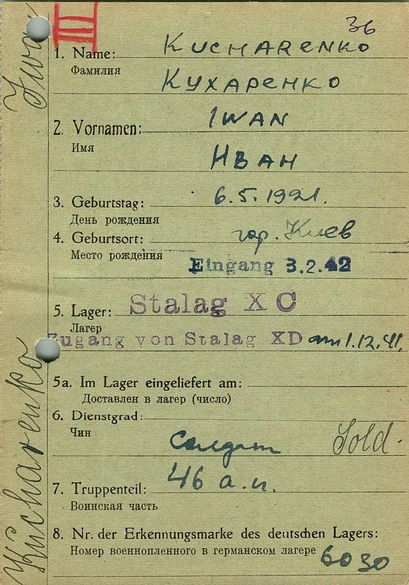 III
36
1. Name: KUCHARENKO
Фамилия КУХАРЕНКО
2. Vornamen: IWAN
Имя ИВАН
3. Geburtstag: 6.5.1921.
День рождения
4. Geburtsort: гор. Киев
Место рождения
Eingang 3.2.42
5. Lager: Stalag X C
Лагерь
Zugang von Stalag XD am 1.12.41.
5a. Im Lager eingeliefert am:
Доставлен в лагерь (число)
6. Dienstgrad:
Чин солдат Sold.
7. Truppenteil: 46 а.п.
Воинская часть
8. Nr. der Erkennungsmarke des deutschen Lagers:
Номер военнопленного в германском лагере 6030
Kucharenko Iwan